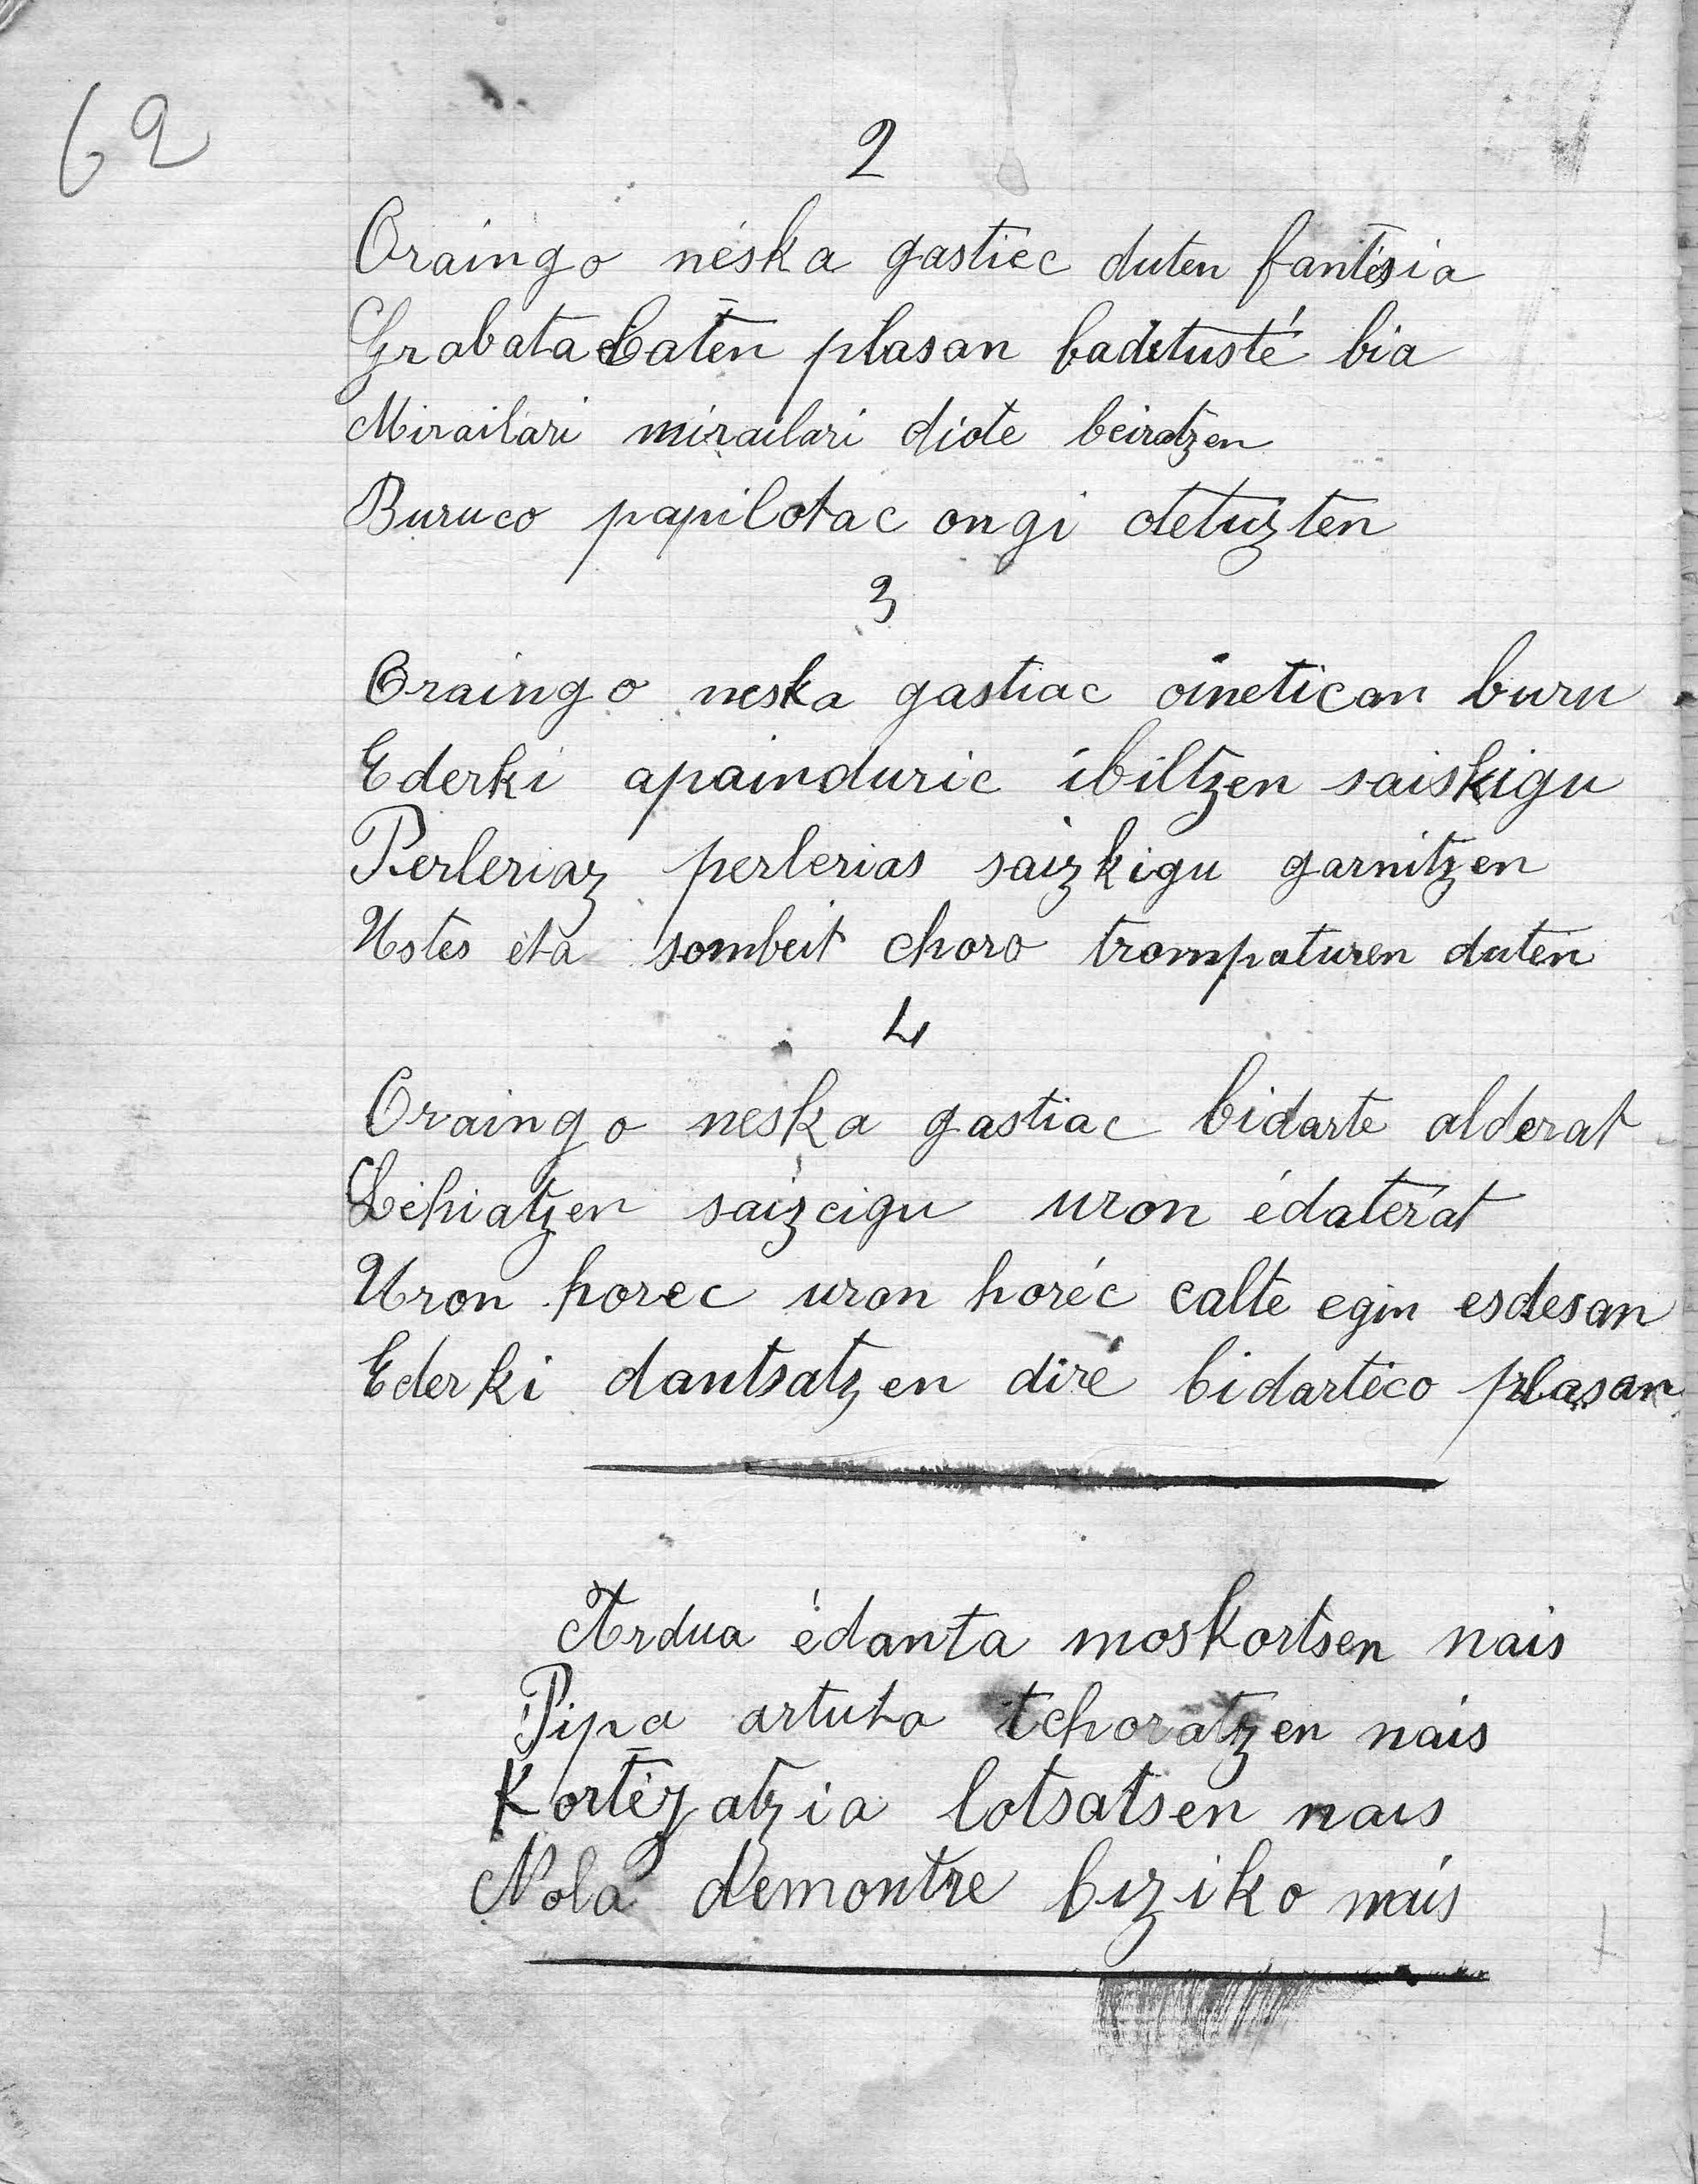 62
2
Oraingo néska gastiéc duten fantésia
Grabata baten plasan badituste bia
Mirailari mirailari diote beiratzen
Buruco papilotac ongi detuzten
3
Oraingo neska gastiac oinetican buru
Ederki apainduric ibiltzen saiskigu
Perleriaz perlerias saizkigu garnitzen
Ustes eta sombeit choro trompaturen duten
4
Oraingo neska gastiac bidarte alderat
Lehiatzen saizcigu uron édaterat
Uron horec uron horéc calte egin esdesan
Ederki dantsatzen dire bidarteco plasan
Ardua édanta moskortsen nais
Pipa artuta tchoratzen nais
Kortéyatzia lotsatsen nais
Nola demontre biziko nais